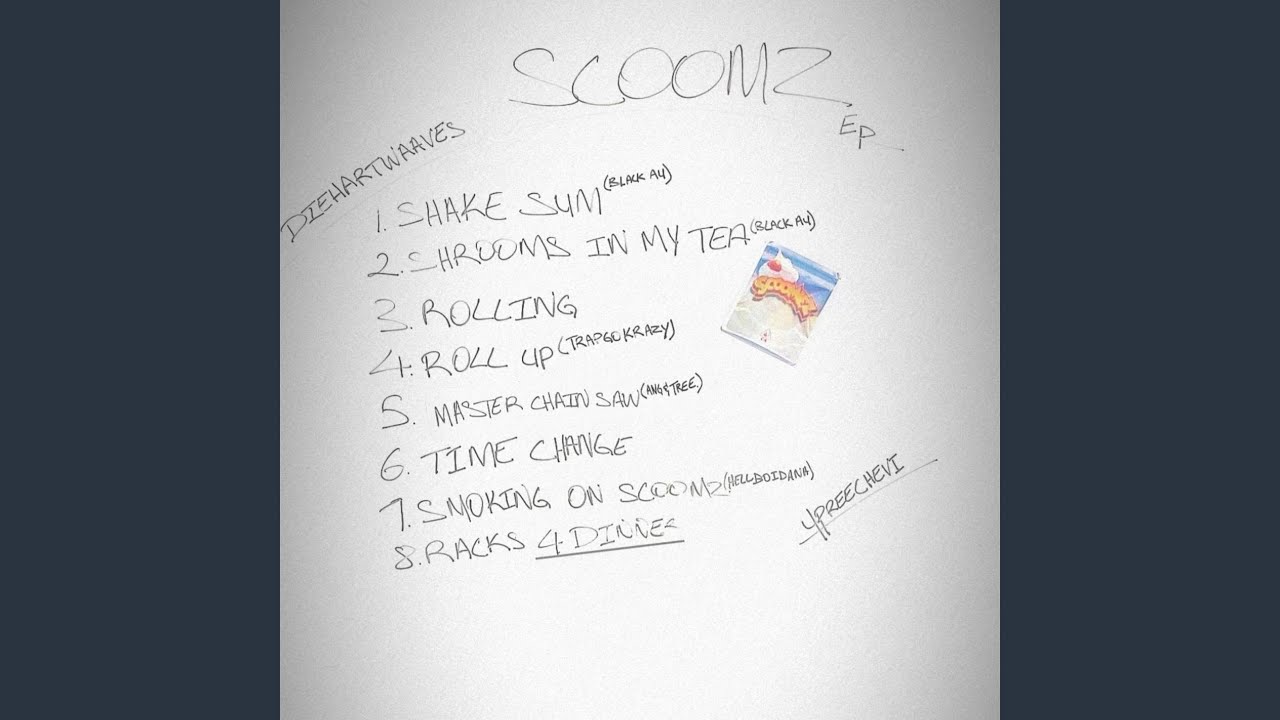 SCOOMZ
EP
DIEHARTWAAVES
1. SHAKE SUM (BLACK AU)
2. SHROOMS IN MY TEA (BLACK AU)
SCOOMZ
3. ROLLING
4. ROLL UP (TRAPGOKRAZY)
5. MASTER CHAIN SAW (ANG & TREE.)
6. TIME CHANGE
7. SMOKING ON SCOOMZ (HELLBOIDANA)
4PREECHEVI
8. RACKS 4 DINNER